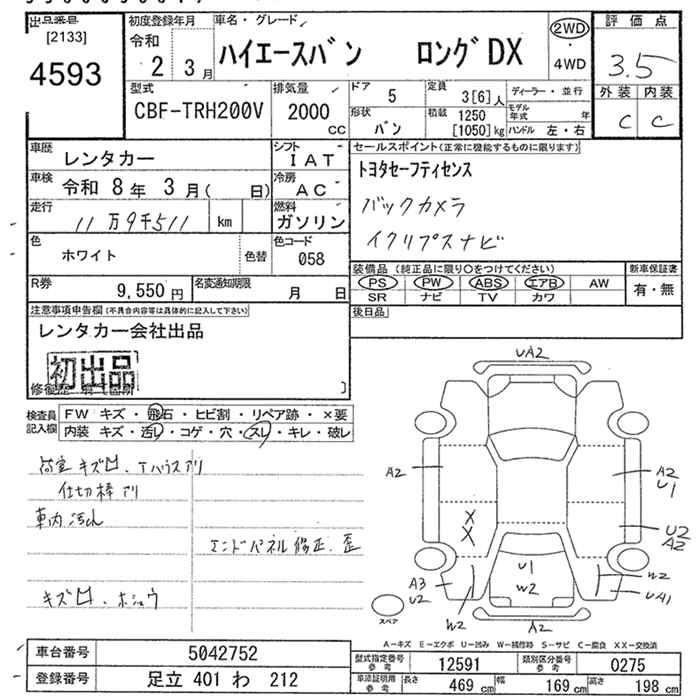 出品番号
[2133]
4593
初度登録年月
令和
2 3月
車名・グレード
ハイエースバン ロングDX
2WD
・
4WD
評価点
3.5
外装 内装
C C
型式
CBF-TRH200V
排気量
2000
CC
ドア
5
定員
3[6]人
ディーラー・並行
形状
バン
積載 1250
[1050]kg
モデル年式 年
ハンドル 左・右
車歴
レンタカー
シフト
IAT
セールスポイント(正常に機能するものに限ります)
トヨタセーフティセンス
バックカメラ
イクリプスナビ
車検
令和 8年 3月( 日)
冷房
AC
走行
11万9千511 km
燃料
ガソリン
色
ホワイト
色替
色コード
058
装備品(純正品に限り○をつけてください)
PS PW ABS エアB AW
SR ナビ TV カワ
新車保証書
有・無
R券
9,550円
名変通知期限
月 日
後日品
注意事項申告欄(不具合内容等は具体的に記入して下さい)
レンタカー会社出品
初出品
検査員記入欄
FW キズ・飛石・ヒビ割・リペア跡・×要
内装 キズ・汚レ・コゲ・穴・スレ・キレ・破レ
荷室キズ凹、
仕切棒アリ
車内汚れ
エンドパネル修正、歪
キズ凹、ホシュウ
UA2
A2
A2
U1
X
X
U2
A2
U1
W2
A3
U2
W2
W2
UA1
A2
スペア
A−キズ E−エクボ U−凹み W−補修跡 S−サビ C−腐食 XX−交換済
車台番号 5042752
登録番号 足立 401 わ 212
型式指定番号 参考 12591
類別区分番号 参考 0275
車両証明用 参考 長さ 469 cm 幅 169 cm 高さ 198 cm